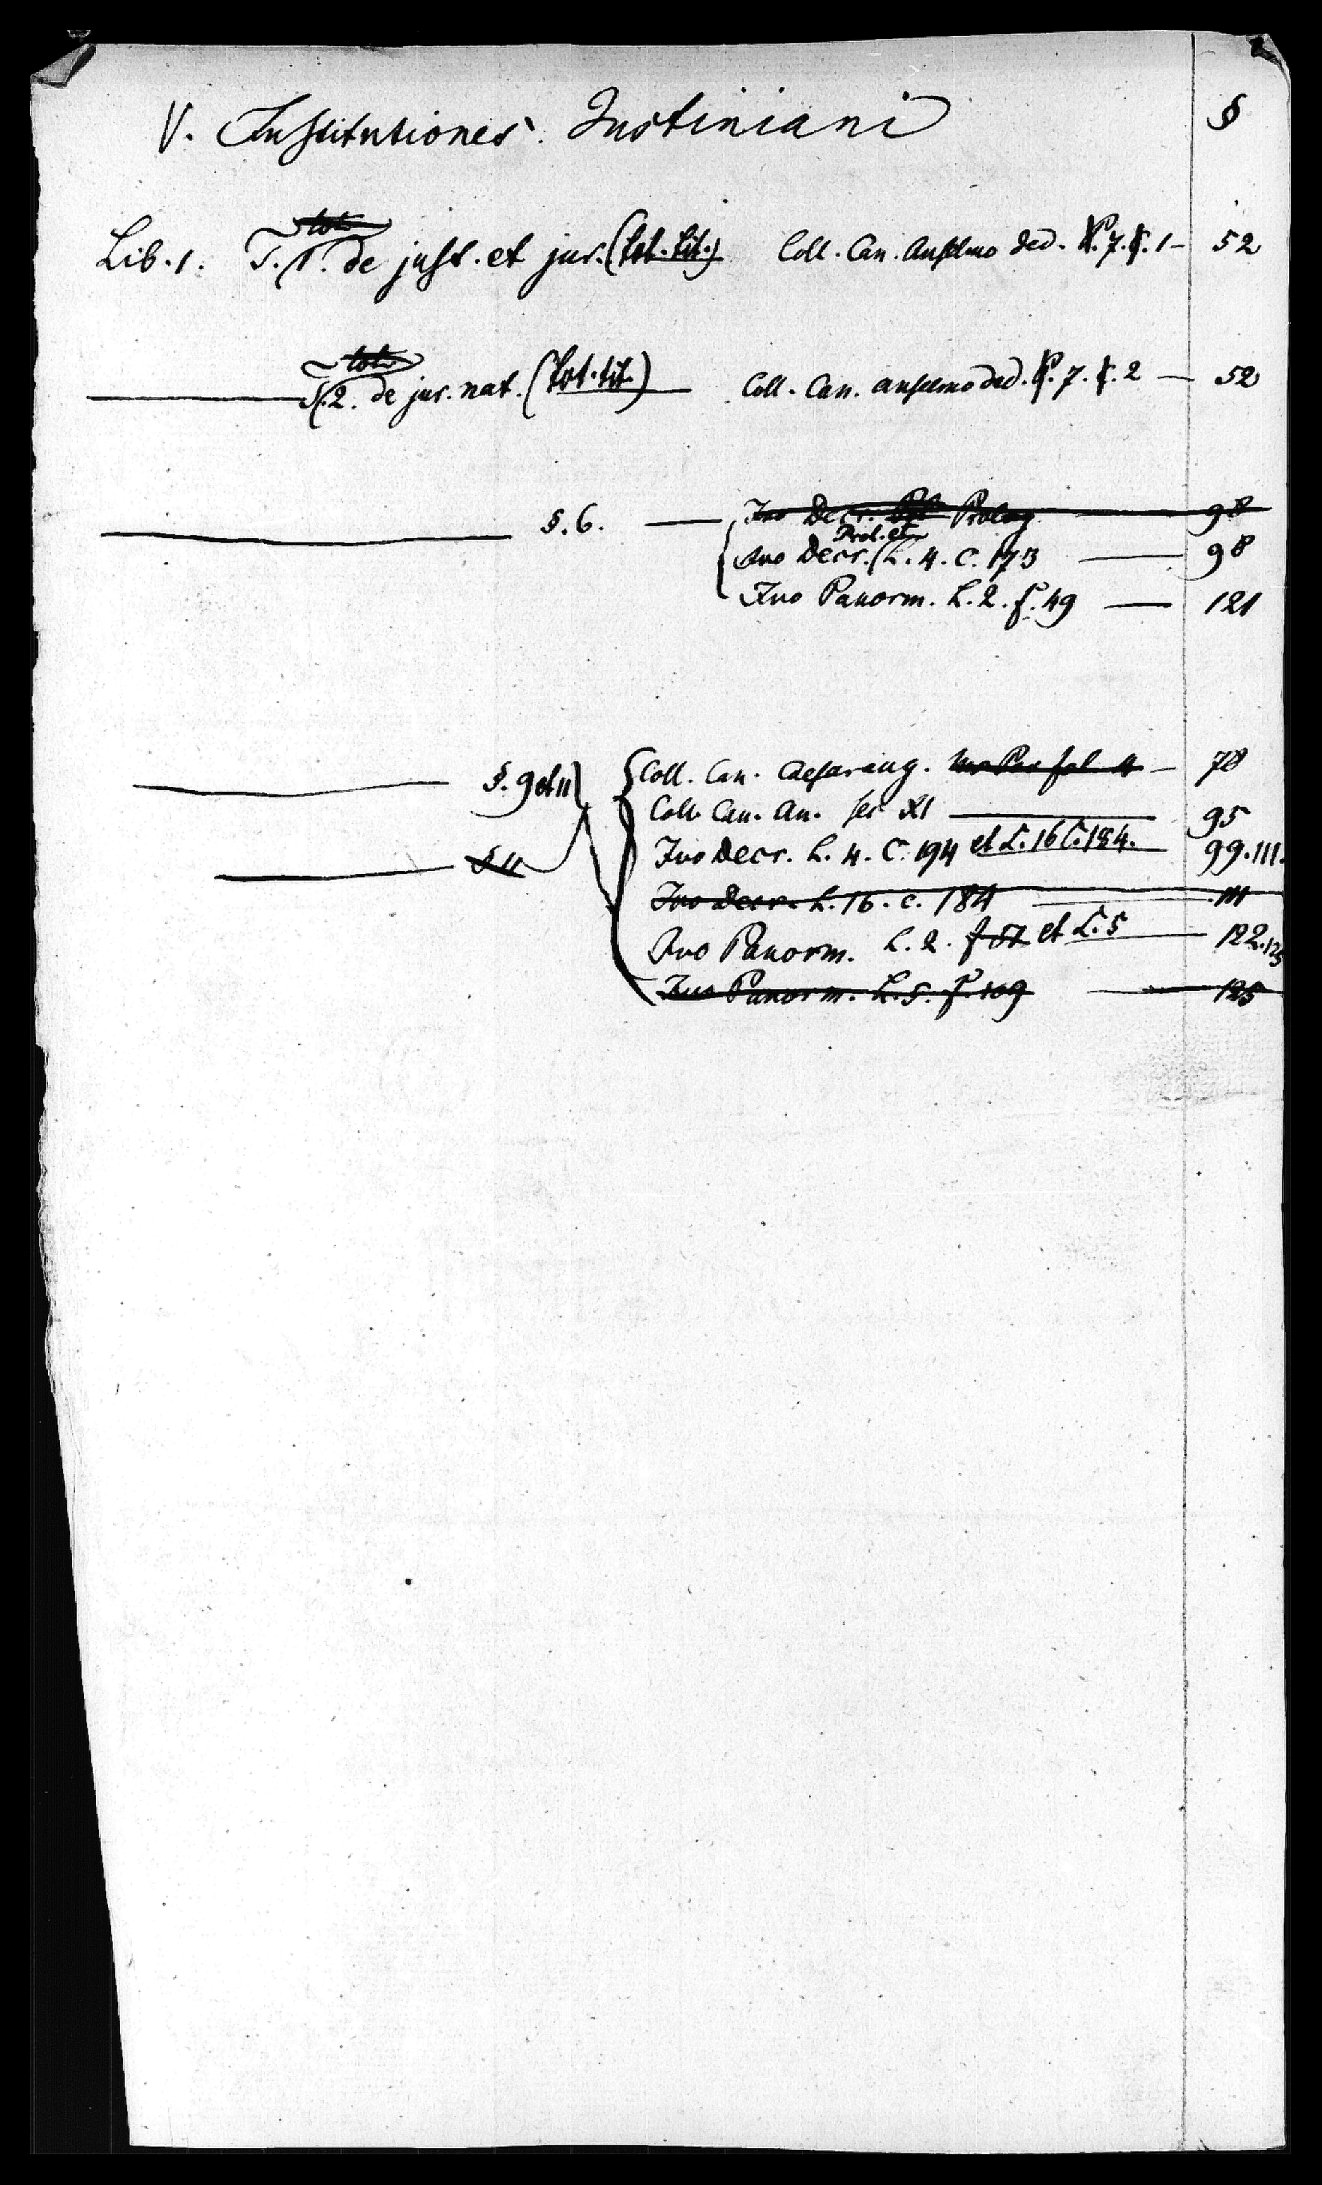 V. Institutiones Justiniani §
tot.
Lib. 1. T. 1. de just. et jur. (tot. tit.) Coll. Can. Anselmo ded. P. 7. c. 1 — 52
tot.
T. 2. de jur. nat. (tot. tit.) Coll. Can. Anselmo ded. P. 7. c. 2 — 52
§. 6. — Ivo Decr. Prolog. — 98
Prol. et
Ivo Decr. L. 4. C. 173 — 98
Ivo Panorm. L. 2. f. 49 — 121
§. 9 et 11 Coll. Can. Caesaraug. fol 4 — 78
Coll. Can. An. XI — 95
§ 11 Ivo Decr. L. 4. C. 194 et L. 16 C. 184. 99. 111.
Ivo Decr. L. 16. c. 184 — 111
Ivo Panorm. L. 2. f 57 et L. 5 — 122. 125
Ivo Panorm. L. 5. f. 109 — 125